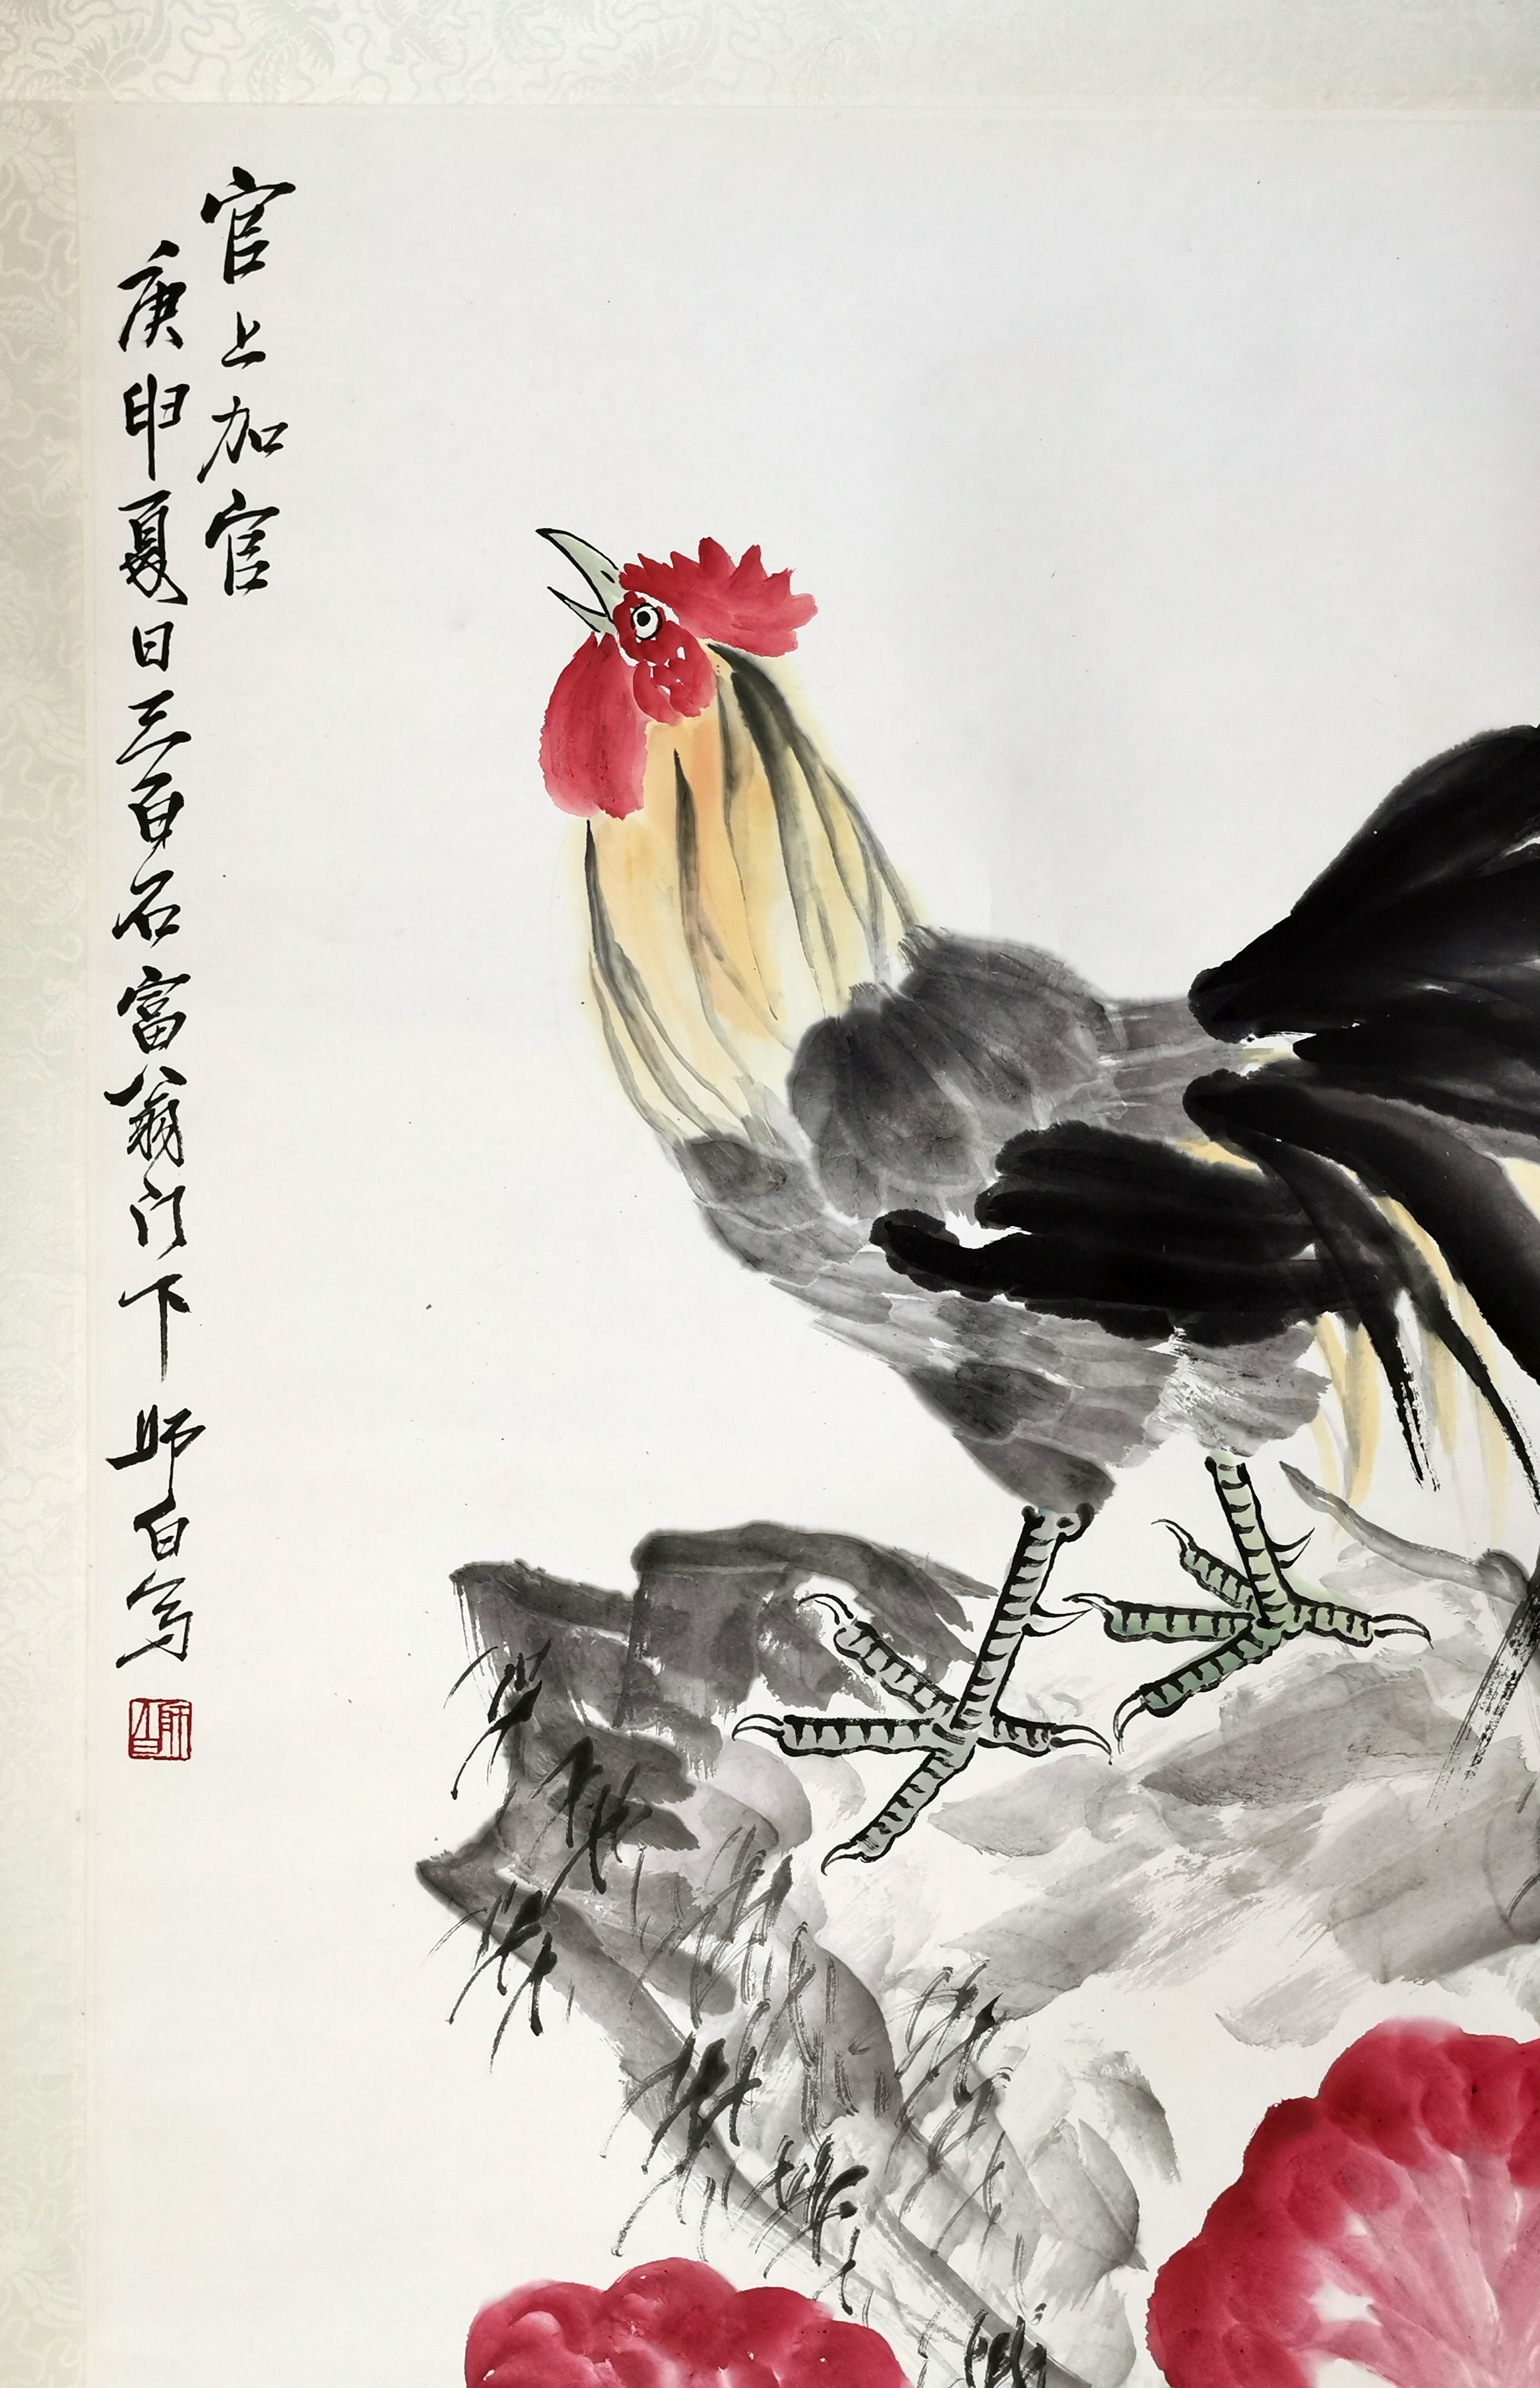 官上加官
庚申夏日三百石富翁门下师白写
师白